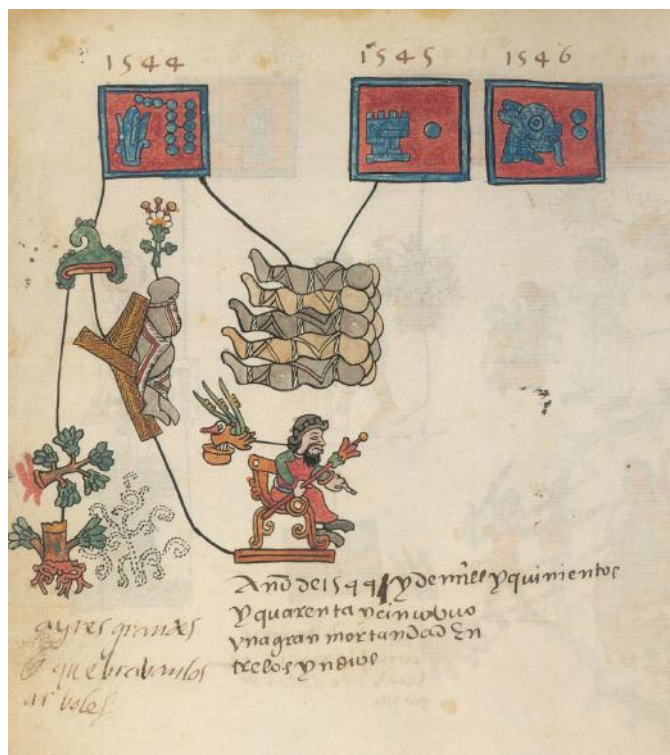 1544
1545
1546
Año de 1544 y de mill y quinientos
y quarenta y cinco vbuo
vna gran mortandad En
tre los yndios
ayres grandes
que brabanlos
arboles